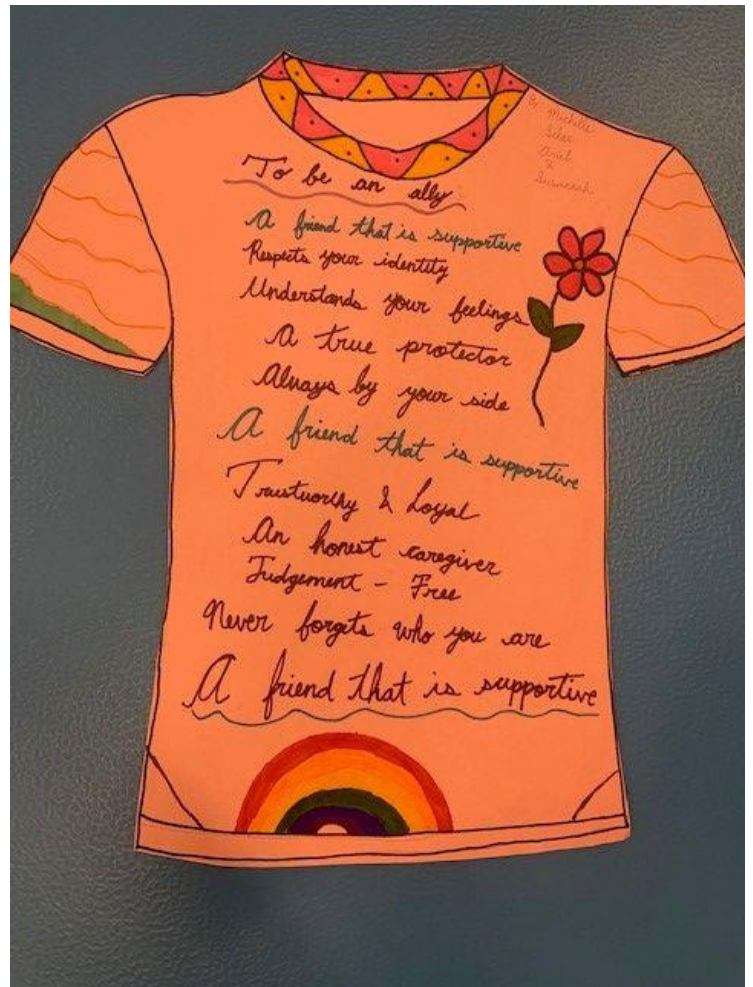 By: Michelle
Ariel
&
Susannah
To be an ally:
A friend that is supportive
Respects your identity
Understands your feelings
A true protector
Always by your side
A friend that is supportive
Trustworthy & Loyal
An honest caregiver
Judgement - Free
Never forgets who you are
A friend that is supportive